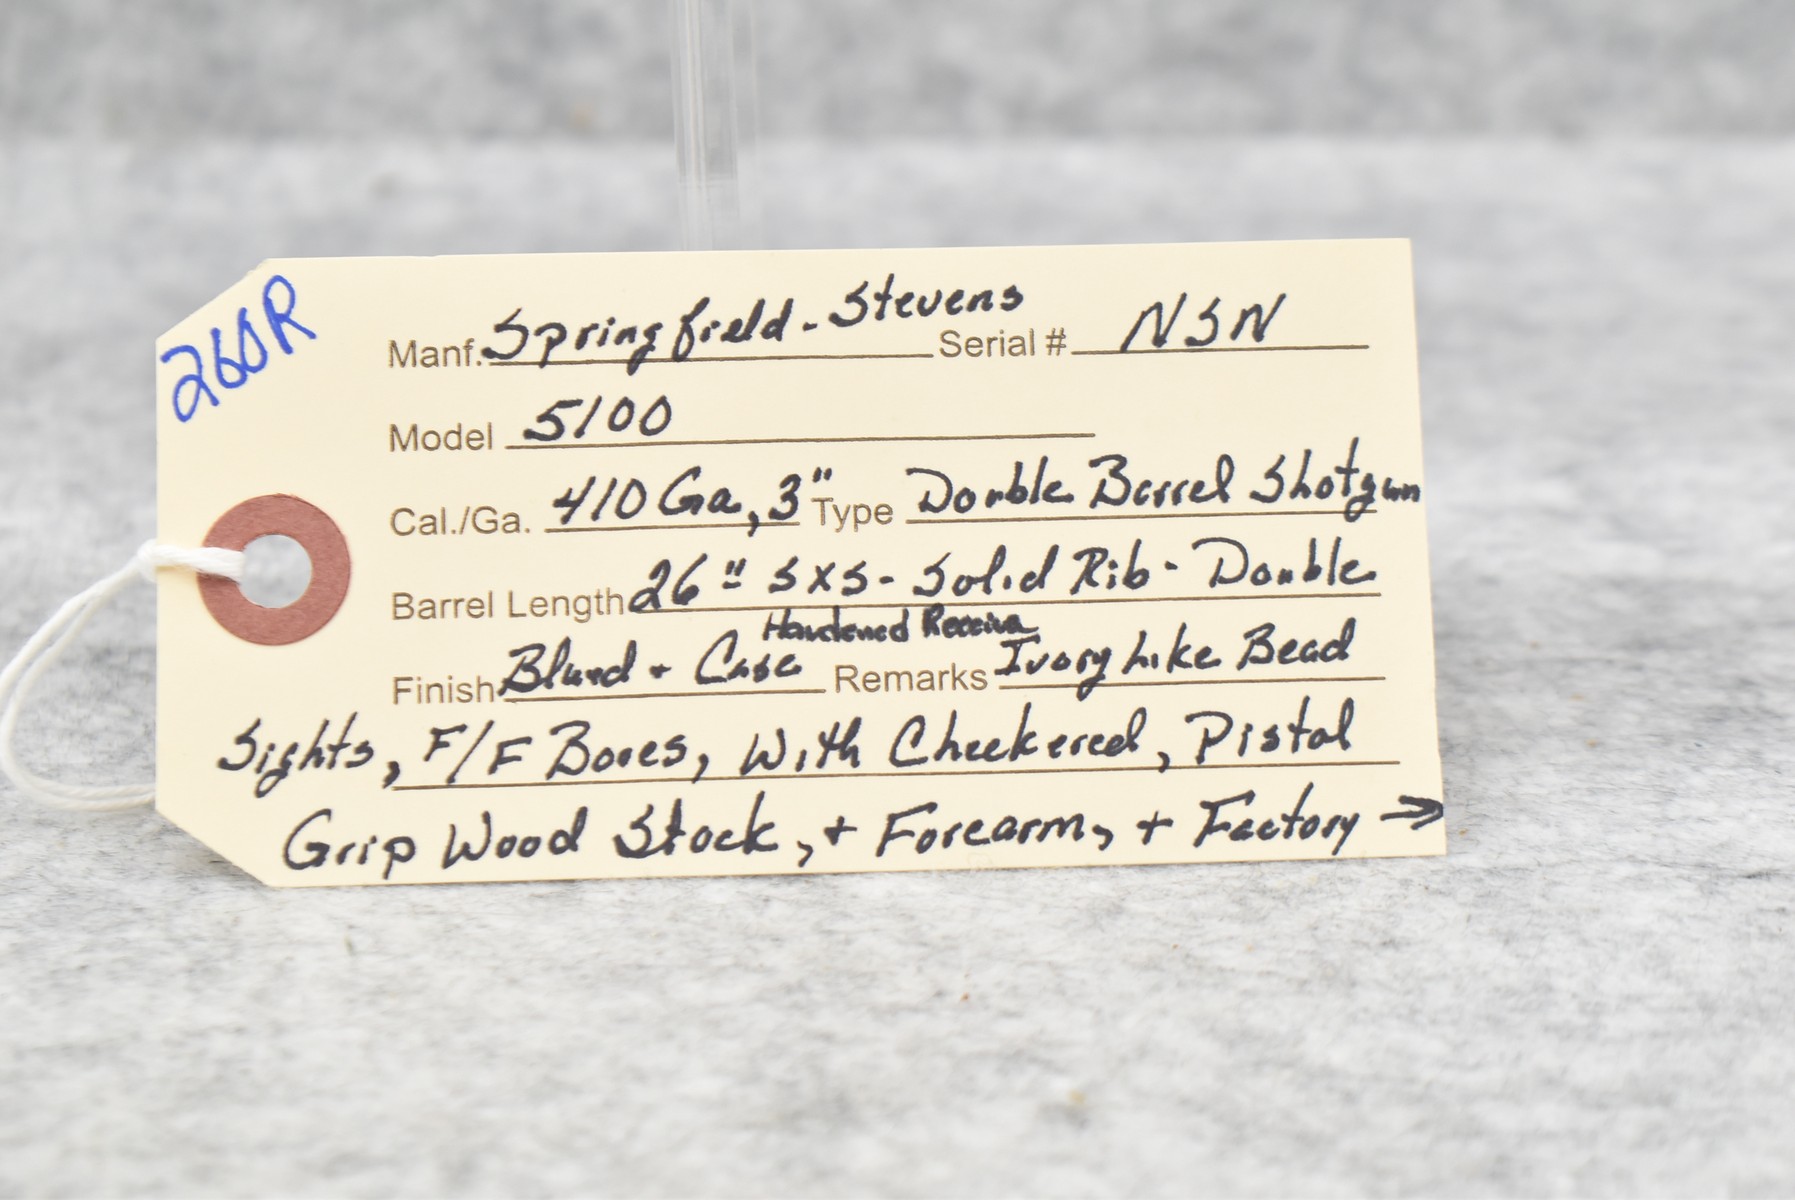 260R
Manf. Springfield - Stevens Serial # NSN
Model 5100
Cal./Ga. 410 Ga, 3" Type Double Barrel Shotgun
Barrel Length 26" SXS - Solid Rib - Double
Hardened Receiver
Finish Blued + Case Remarks Ivory Like Bead
Sights, F/F Bores, With Checkered, Pistol
Grip Wood Stock, + Forearm, + Factory →